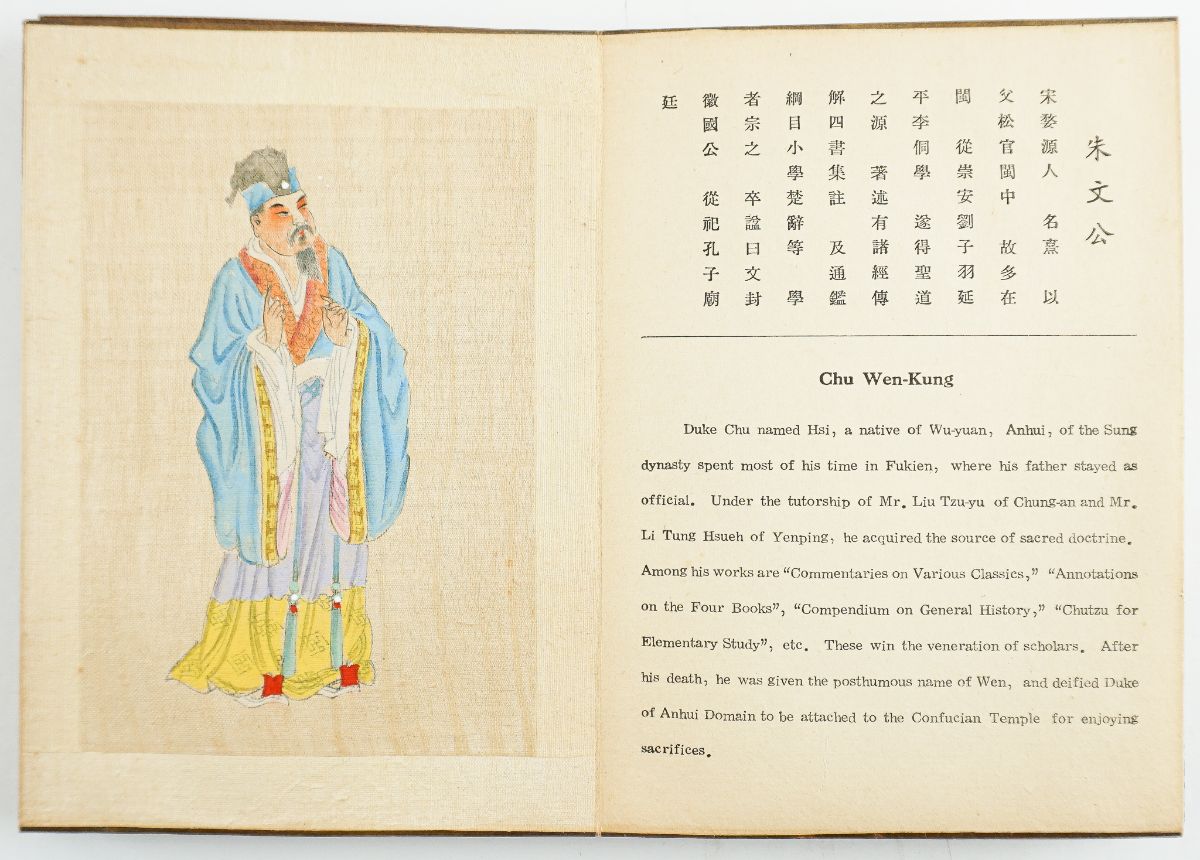 朱文公
宋婺源人 名熹 以
父松官閩中 故多在
閩 從崇安劉子羽延
平李侗學 遂得聖道
之源 著述有諸經傳
解四書集註 及通鑑
綱目小學楚辭等 學
者宗之 卒諡曰文封
徽國公 從祀孔子廟
廷
Chu Wen-Kung
Duke Chu named Hsi, a native of Wu-yuan, Anhui, of the Sung
dynasty spent most of his time in Fukien, where his father stayed as
official. Under the tutorship of Mr. Liu Tzu-yu of Chung-an and Mr.
Li Tung Hsueh of Yenping, he acquired the source of sacred doctrine.
Among his works are “Commentaries on Various Classics,” “Annotations
on the Four Books”, “Compendium on General History,” “Chutzu for
Elementary Study”, etc. These win the veneration of scholars. After
his death, he was given the posthumous name of Wen, and deified Duke
of Anhui Domain to be attached to the Confucian Temple for enjoying
sacrifices.